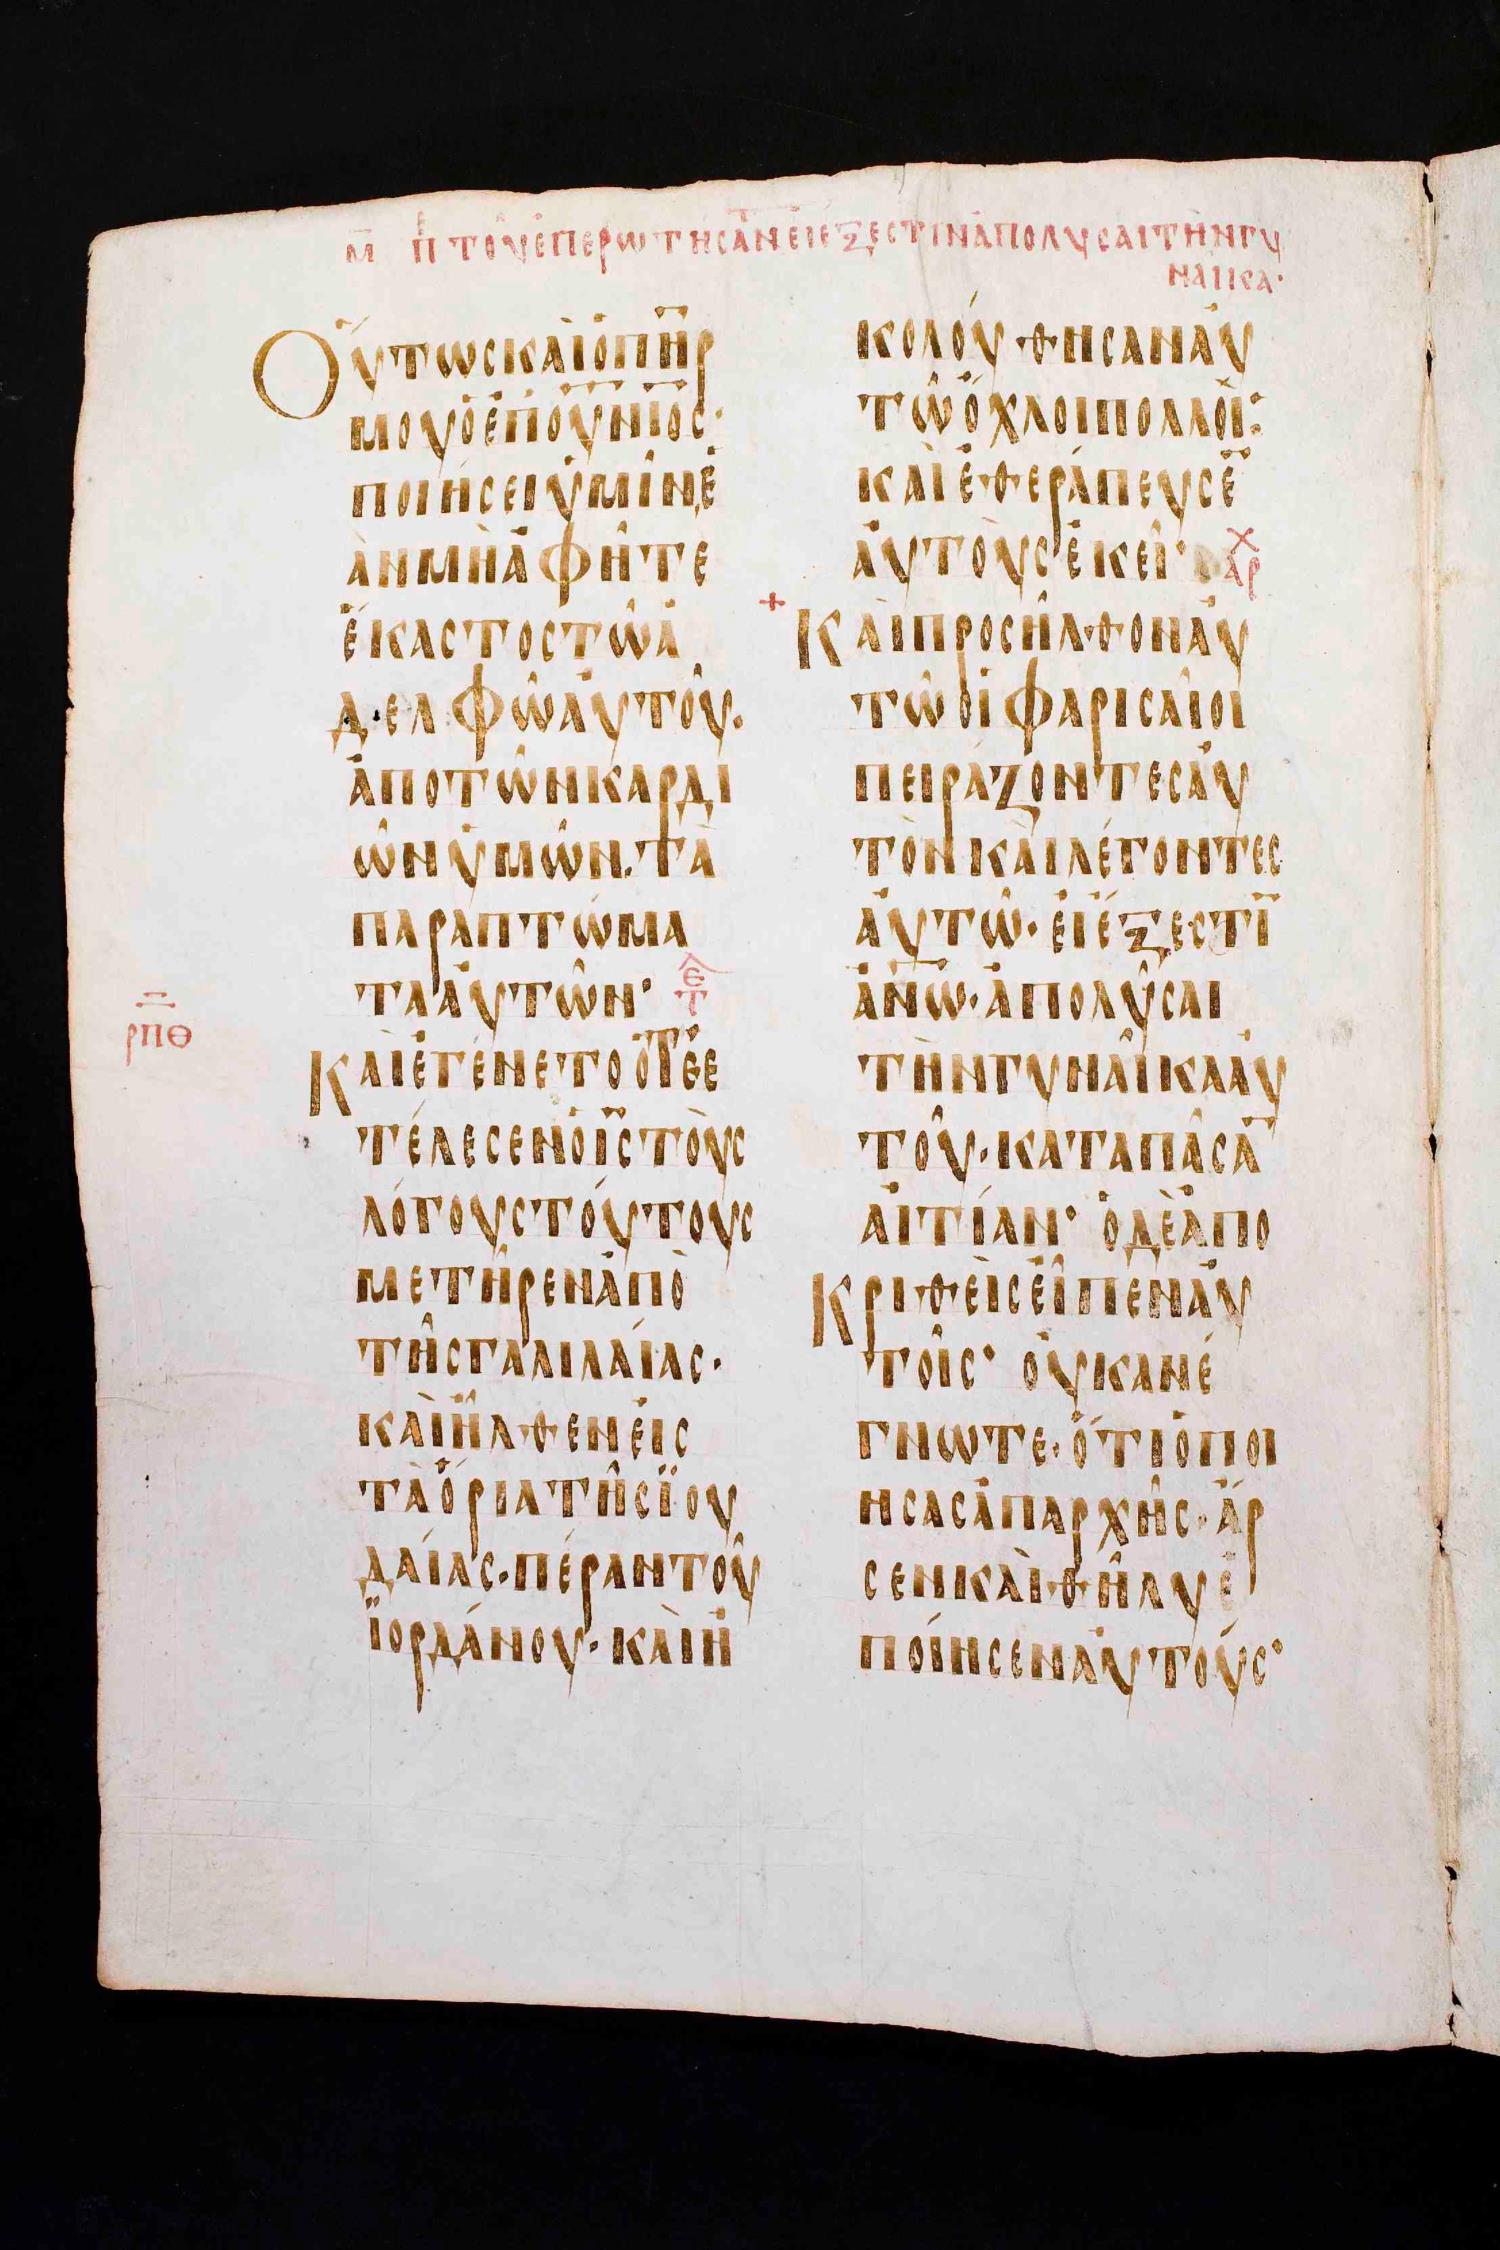 Μ̅ Π̅ΤΟῦἘΠΕΡΩΤΉϹΑΝ̅ΕΙἘΞΕϹΤΙΝἈΠΟΛΥϹΑΙΤῊΝΓΥ
ΝΑῖΙΚΑ·
ΟὝΤΩϹΚΑῚὉΠΗ̅Ρ
ΜΟΥὉἘΠΟΥ̅ΝΙΟ̅Ϲ·
ΠΟΙΉϹΕΙὙΜῖΝ,Ἐ
ᾺΝΜῊἈΦΗ͂ΤΕ
ἝΚΑϹΤΟϹΤΩ͂Ἀ
ΔΕΛΦΩ͂ΑὙΤΟΥ͂·
ἈΠΟΤΩ͂ΝΚΑΡΔΙ
Ω͂ΝὙΜΩ͂Ν·ΤᾺ
ΠΑΡΑΠΤΏΜΑ
ΤΑΑὙΤΩ͂Ν· ΤΕΛ
ΡΠΘ
ΚΑῚἘΓΈΝΕΤΟὍΤΕἘ
ΤΈΛΕϹΕΝὉΙ̅Ϲ̅ΤΟῪϹ
ΛΌΓΟΥϹΤΟΎΤΟΥϹ
ΜΕΤΗ͂ΡΕΝἈΠῸ
ΤΗ͂ϹΓΑΛΙΛΑΊΑϹ·
ΚΑῚἮΛΘΕΝΕἸϹ
ΤᾺὍΡΙΑΤΗ͂ϹΪΟΥ
ΔΑΊΑϹ·ΠΈΡΑΝΤΟΥ͂
ΪΟΡΔΆΝΟΥ·ΚΑῚἨ
ΚΟΛΟΎΘΗϹΑΝΑὐ
ΤΩ͂ὌΧΛΟΙΠΟΛΛΟῚ:
ΚΑῚἘΘΕΡΆΠΕΥϹΕ̅
ΑὐΤΟῪϹἘΚΕῖ· ΑΡΧ
+ΚΑῚΠΡΟϹΗ͂ΛΘΟΝΑὐ
ΤΩ͂ΟἹΦΑΡΙϹΑῖΟΙ
ΠΕΙΡΆΖΟΝΤΕϹΑὐ
ΤῸΝΚΑῚΛΈΓΟΝΤΕϹ
ΑὐΤΩ͂·ΕἸἜΞΕϹΤΙ̅
ἈΝ̅Ω̅·ἈΠΟΛΥ͂ϹΑΙ
ΤῊΝΓΥΝΑῖΚΑΑὐ
ΤΟΥ͂·ΚΑΤΑΠΑ͂ϹΑ̅
ΑἸΤΊΑΝ· ὉΔῈἈΠΟ
ΚΡΙΘΕῚϹΕἾΠΕΝΑὐ
ΤΟῖϹ· ΟὐΚΑΝΈ
ΓΝΩΤΕ·ὍΤΙὉΠΟΙ
ΗϹΑϹἈΠΑΡΧΗ͂Ϲ·ἌΡ
ϹΕΝΚΑῚΘΗ͂ΛΥἘ
ΠΟΊΗϹΕΝΑὐΤΟΎϹ·